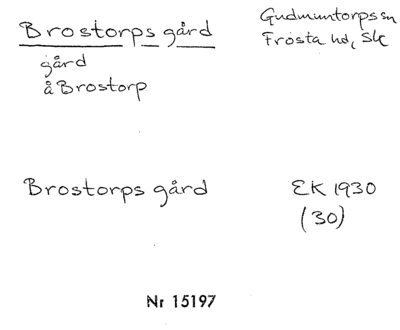 Brostorps gård
Gudmuntorps sn
Frosta hd, Sk
gård
å Brostorp
Brostorps gård
EK 1930
(30)
Nr 15197